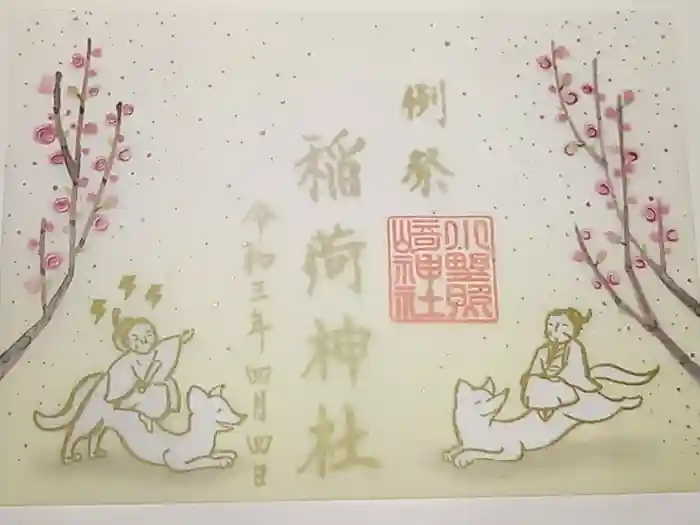 例祭
稲荷神社
令和三年四月四日
小野照
崎神社